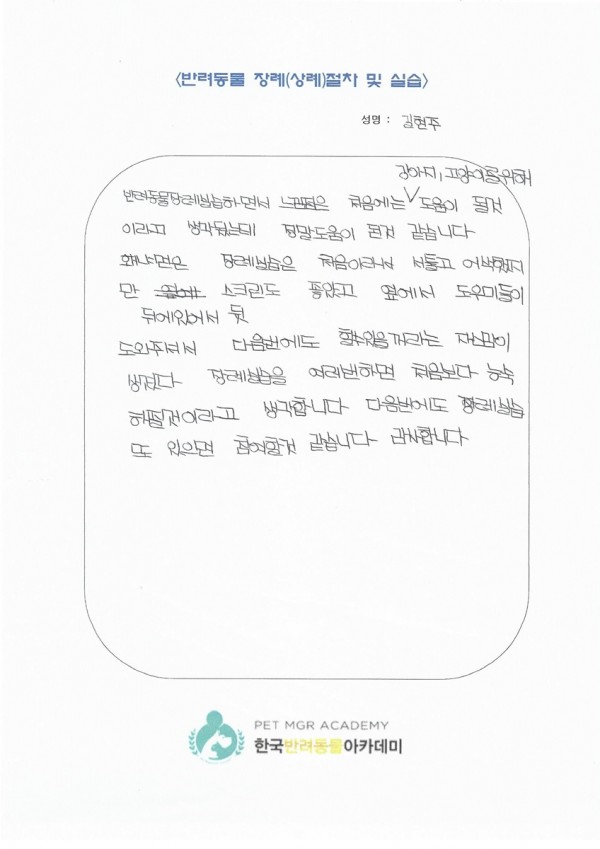 <반려동물 장례(상례)절차 및 실습>
성명 : 김현주
강아지, 고양이를위해
반려동물장례실습하면서 느낀점은 처음에는 도움이 될것
이라고 생각됬는데 정말도움이 된것 같습니다
왜냐면은 장례실습은 처음이라서 서툴고 어색했지
만 옆에 스크린도 좋았고 옆에서 도우미들이
뒤에있어서 뒷
도와주셔서 다음번에도 할수있을꺼라는 자신감이
생겼다 장례실습을 여러번하면 처음보다 능숙
해질것이라고 생각합니다 다음번에도 장례실습
또 있으면 참여할것 같습니다 감사합니다
PET MGR ACADEMY
한국반려동물아카데미